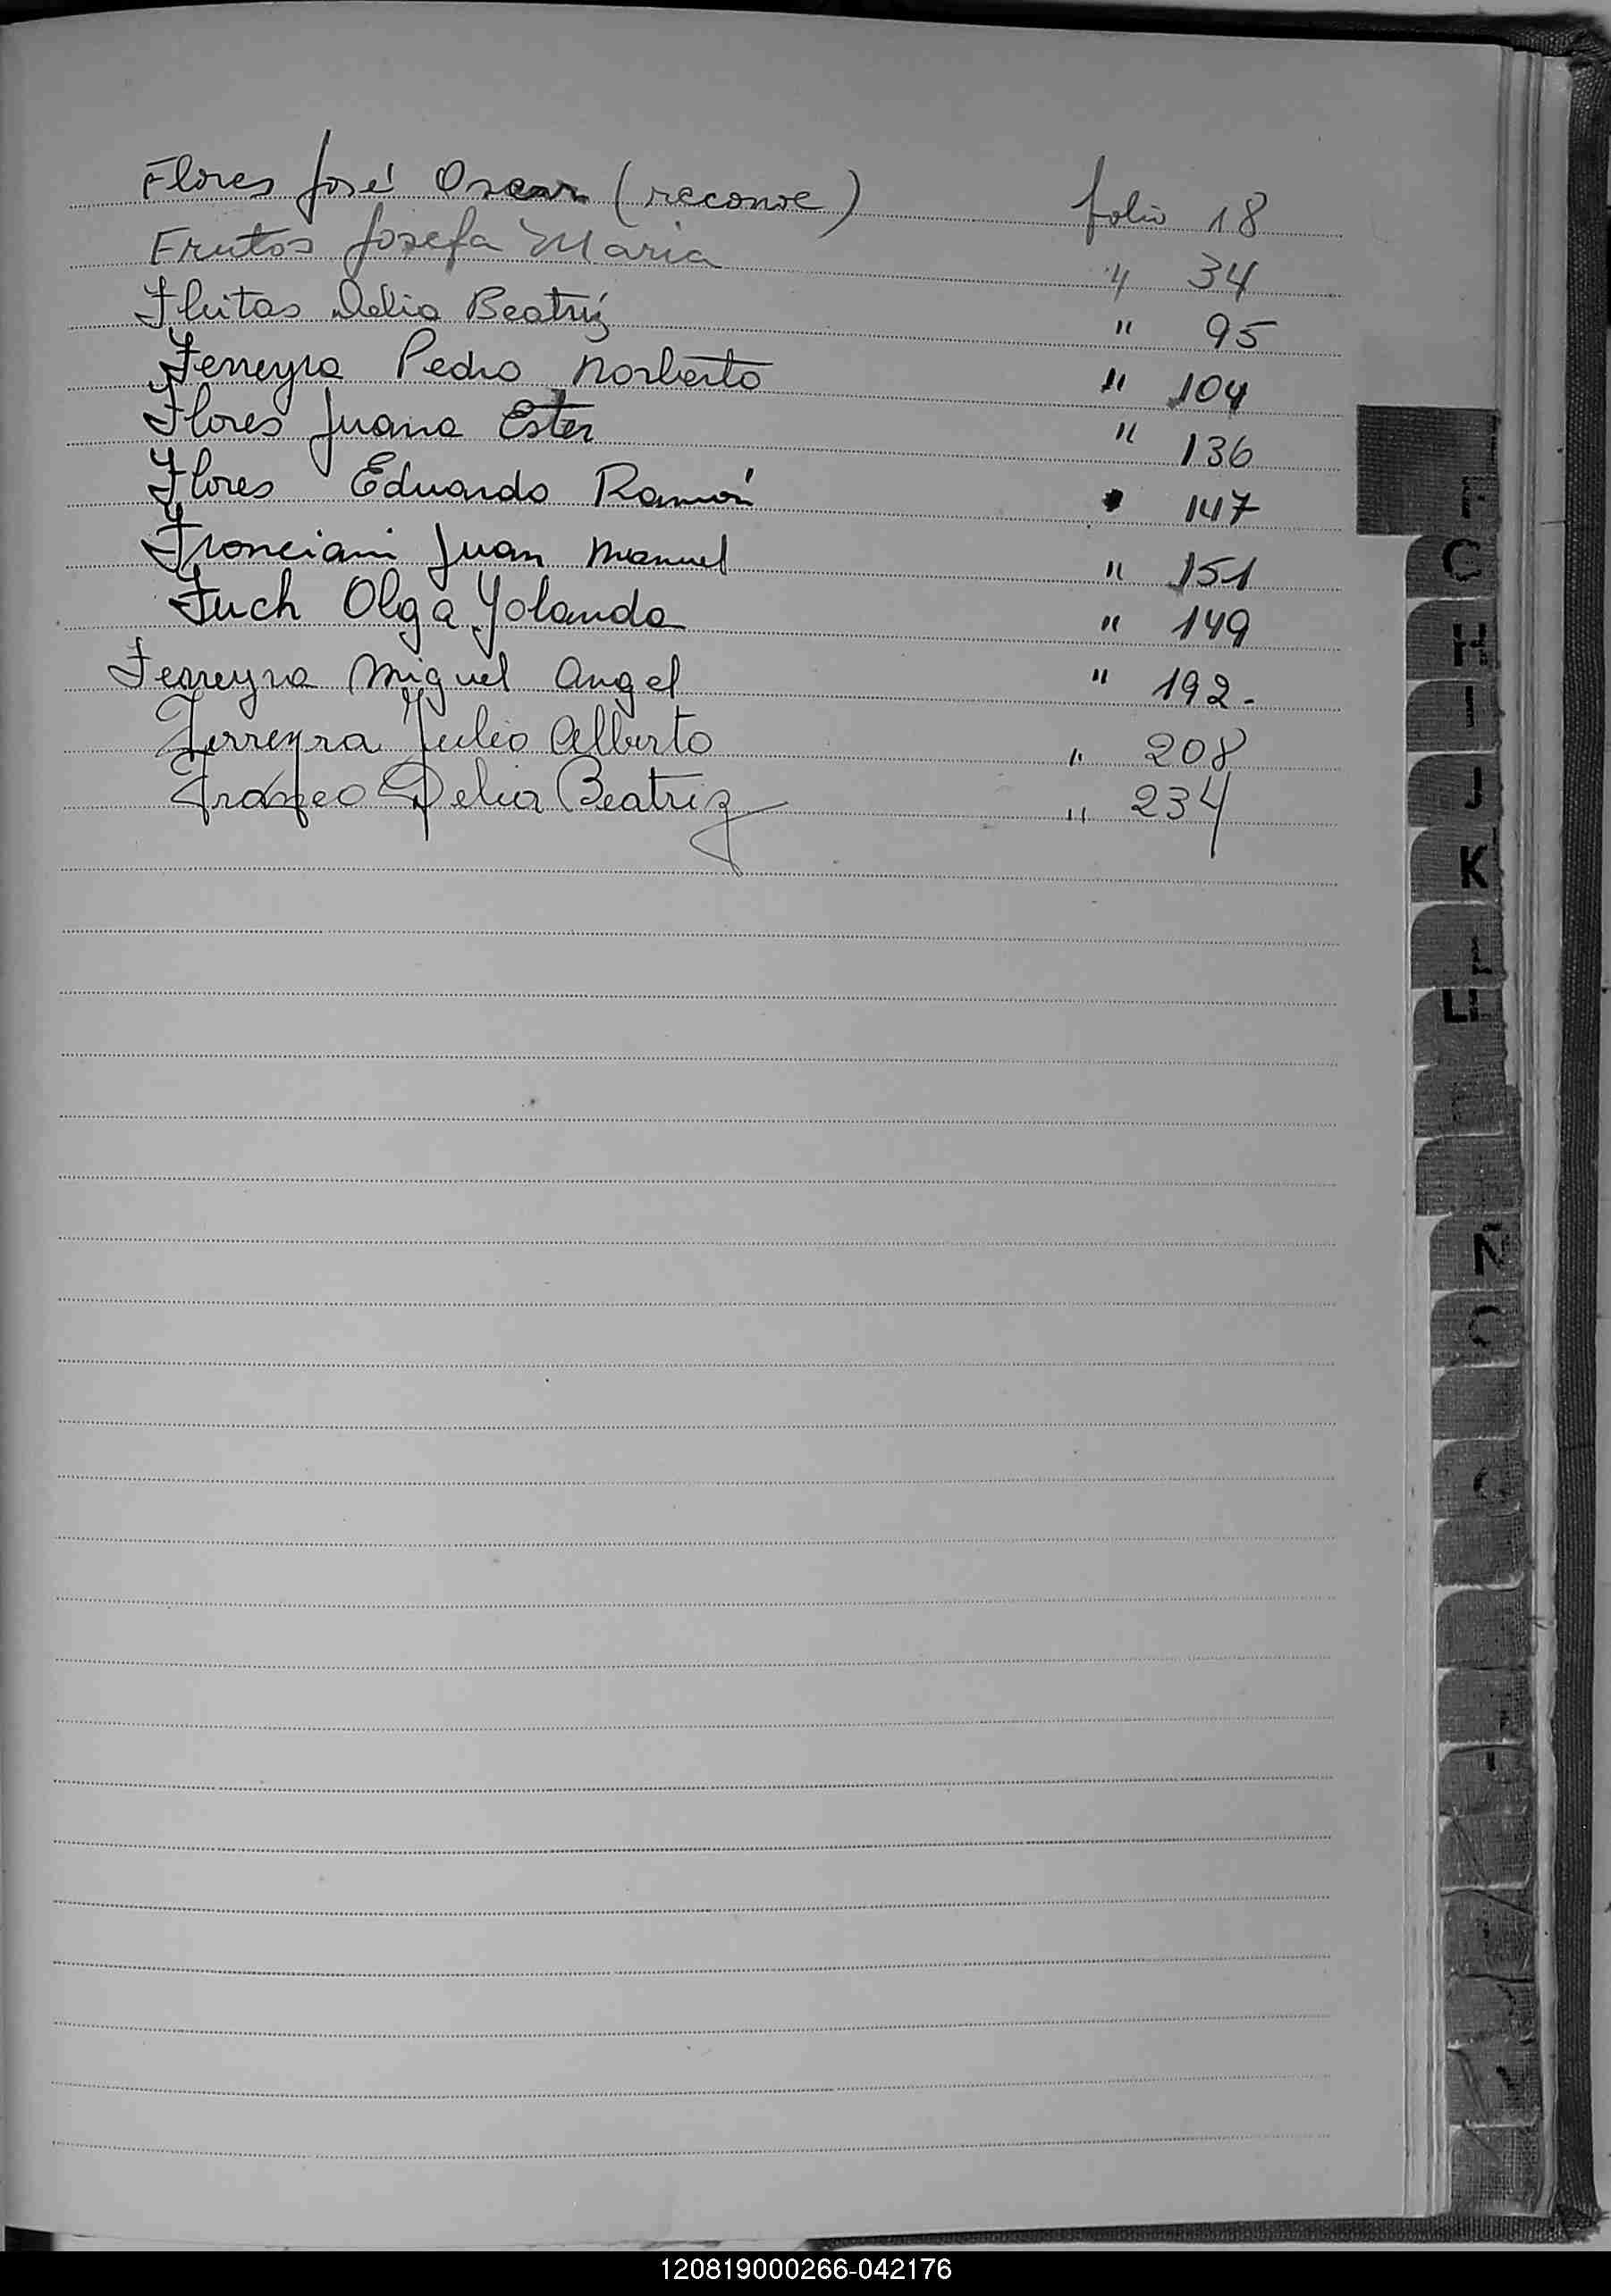 Flores José Oscar (reconoc) folio 18
Frutos Josefa Maria " 34
Fleitas Delia Beatríz " 95
Ferreyra Pedro Norberto " 104
Flores Juana Ester " 136
Flores Eduardo Ramón " 147
Fronciani Juan Manuel " 151
Fuch Olga Yolanda " 149
Ferreyra Miguel Angel " 192.
Ferreyra Julio Alberto " 208
Franco Delia Beatriz " 234
H
I
J
K
Ñ
120819000266-042176